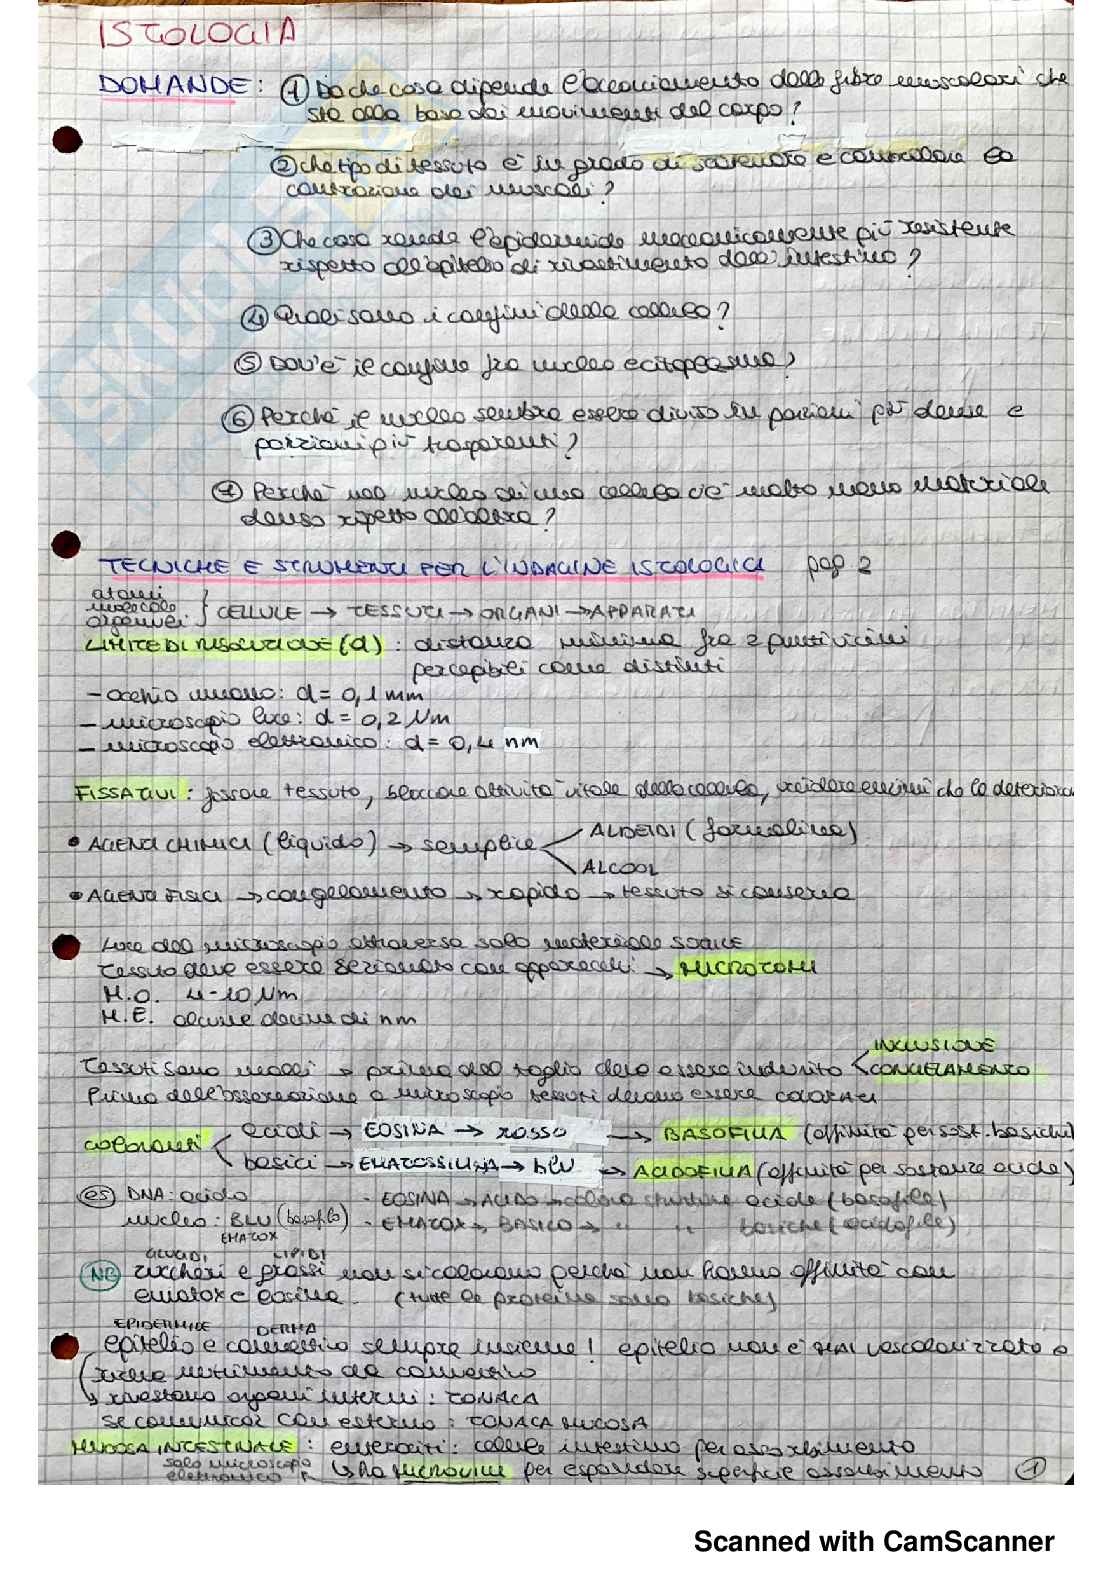 ISTOLOGIA
DOMANDE: ① Da che cosa dipende l'accorciamento delle fibre muscolari che
sta alla base dei movimenti del corpo?
② che tipo di tessuto è in grado di scatenare e controllare la
contrazione dei muscoli?
③ Che cosa rende l'epidermide meccanicamente più resistente
rispetto all'epitelio di rivestimento dell'intestino?
④ Quali sono i confini delle cellule?
⑤ Dov'è il confine fra nucleo e citoplasma?
⑥ Perché il nucleo sembra essere diviso in porzioni più dense e
porzioni più trasparenti?
⑦ Perché nel nucleo di una cellula c'è molto meno materiale
denso rispetto all'altra?
TECNICHE E STRUMENTI PER L'INDAGINE ISTOLOGICA pag 2
atomi
molecole
organuli } CELLULE → TESSUTI → ORGANI → APPARATI
LIMITE DI RISOLUZIONE (d) : distanza minima fra 2 punti vicini
percepibili come distinti
- occhio umano: d = 0,1 mm
- microscopio luce: d = 0,2 μm
- microscopio elettronico: d = 0,4 nm
FISSATIVI : fissare tessuto, bloccare attività vitale della cellula, uccidere enzimi che la deteriorano
• AGENTI CHIMICI (liquido) → semplice ALDEIDI (formalina)
ALCOOL
• AGENTI FISICI → congelamento → rapido → tessuto si conserva
Luce del microscopio attraversa solo materiale sottile
Tessuto deve essere sezionato con apparecchi → MICROTOMI
M.O. 4-10 μm
M.E. alcune decine di nm
Tessuti sono molli → prima del taglio deve essere indurito INCLUSIONE
CONGELAMENTO
Prima dell'osservazione a microscopio tessuti devono essere colorati
coloranti acidi → EOSINA → rosso → BASOFILIA (affinità per sost. basiche)
basici → EMATOSSILINA → blu → ACIDOFILIA (affinità per sostanze acide)
(es) DNA: acido - EOSINA → ACIDO → colora strutture acide (basofile)
nucleo: BLU (basofilo) - EMATOX → BASICO → " " basiche (acidofile)
EMATOX
GLUCIDI LIPIDI
NB zuccheri e grassi non si colorano perché non hanno affinità con
ematox e eosina. (tutte le proteine sono basiche)
EPIDERMIDE DERMA
epitelio e connettivo sempre insieme! epitelio non è mai vascolarizzato e
riceve nutrimento da connettivo
→ rivestono organi interni: TONACA
se comunicaz con esterno: TONACA MUCOSA
MUCOSA INTESTINALE : enterociti: cellule intestino per assorbimento
solo microscopio
elettronico ↳ ha MICROVILLI per espandere superficie assorbimento ①
Scanned with CamScanner